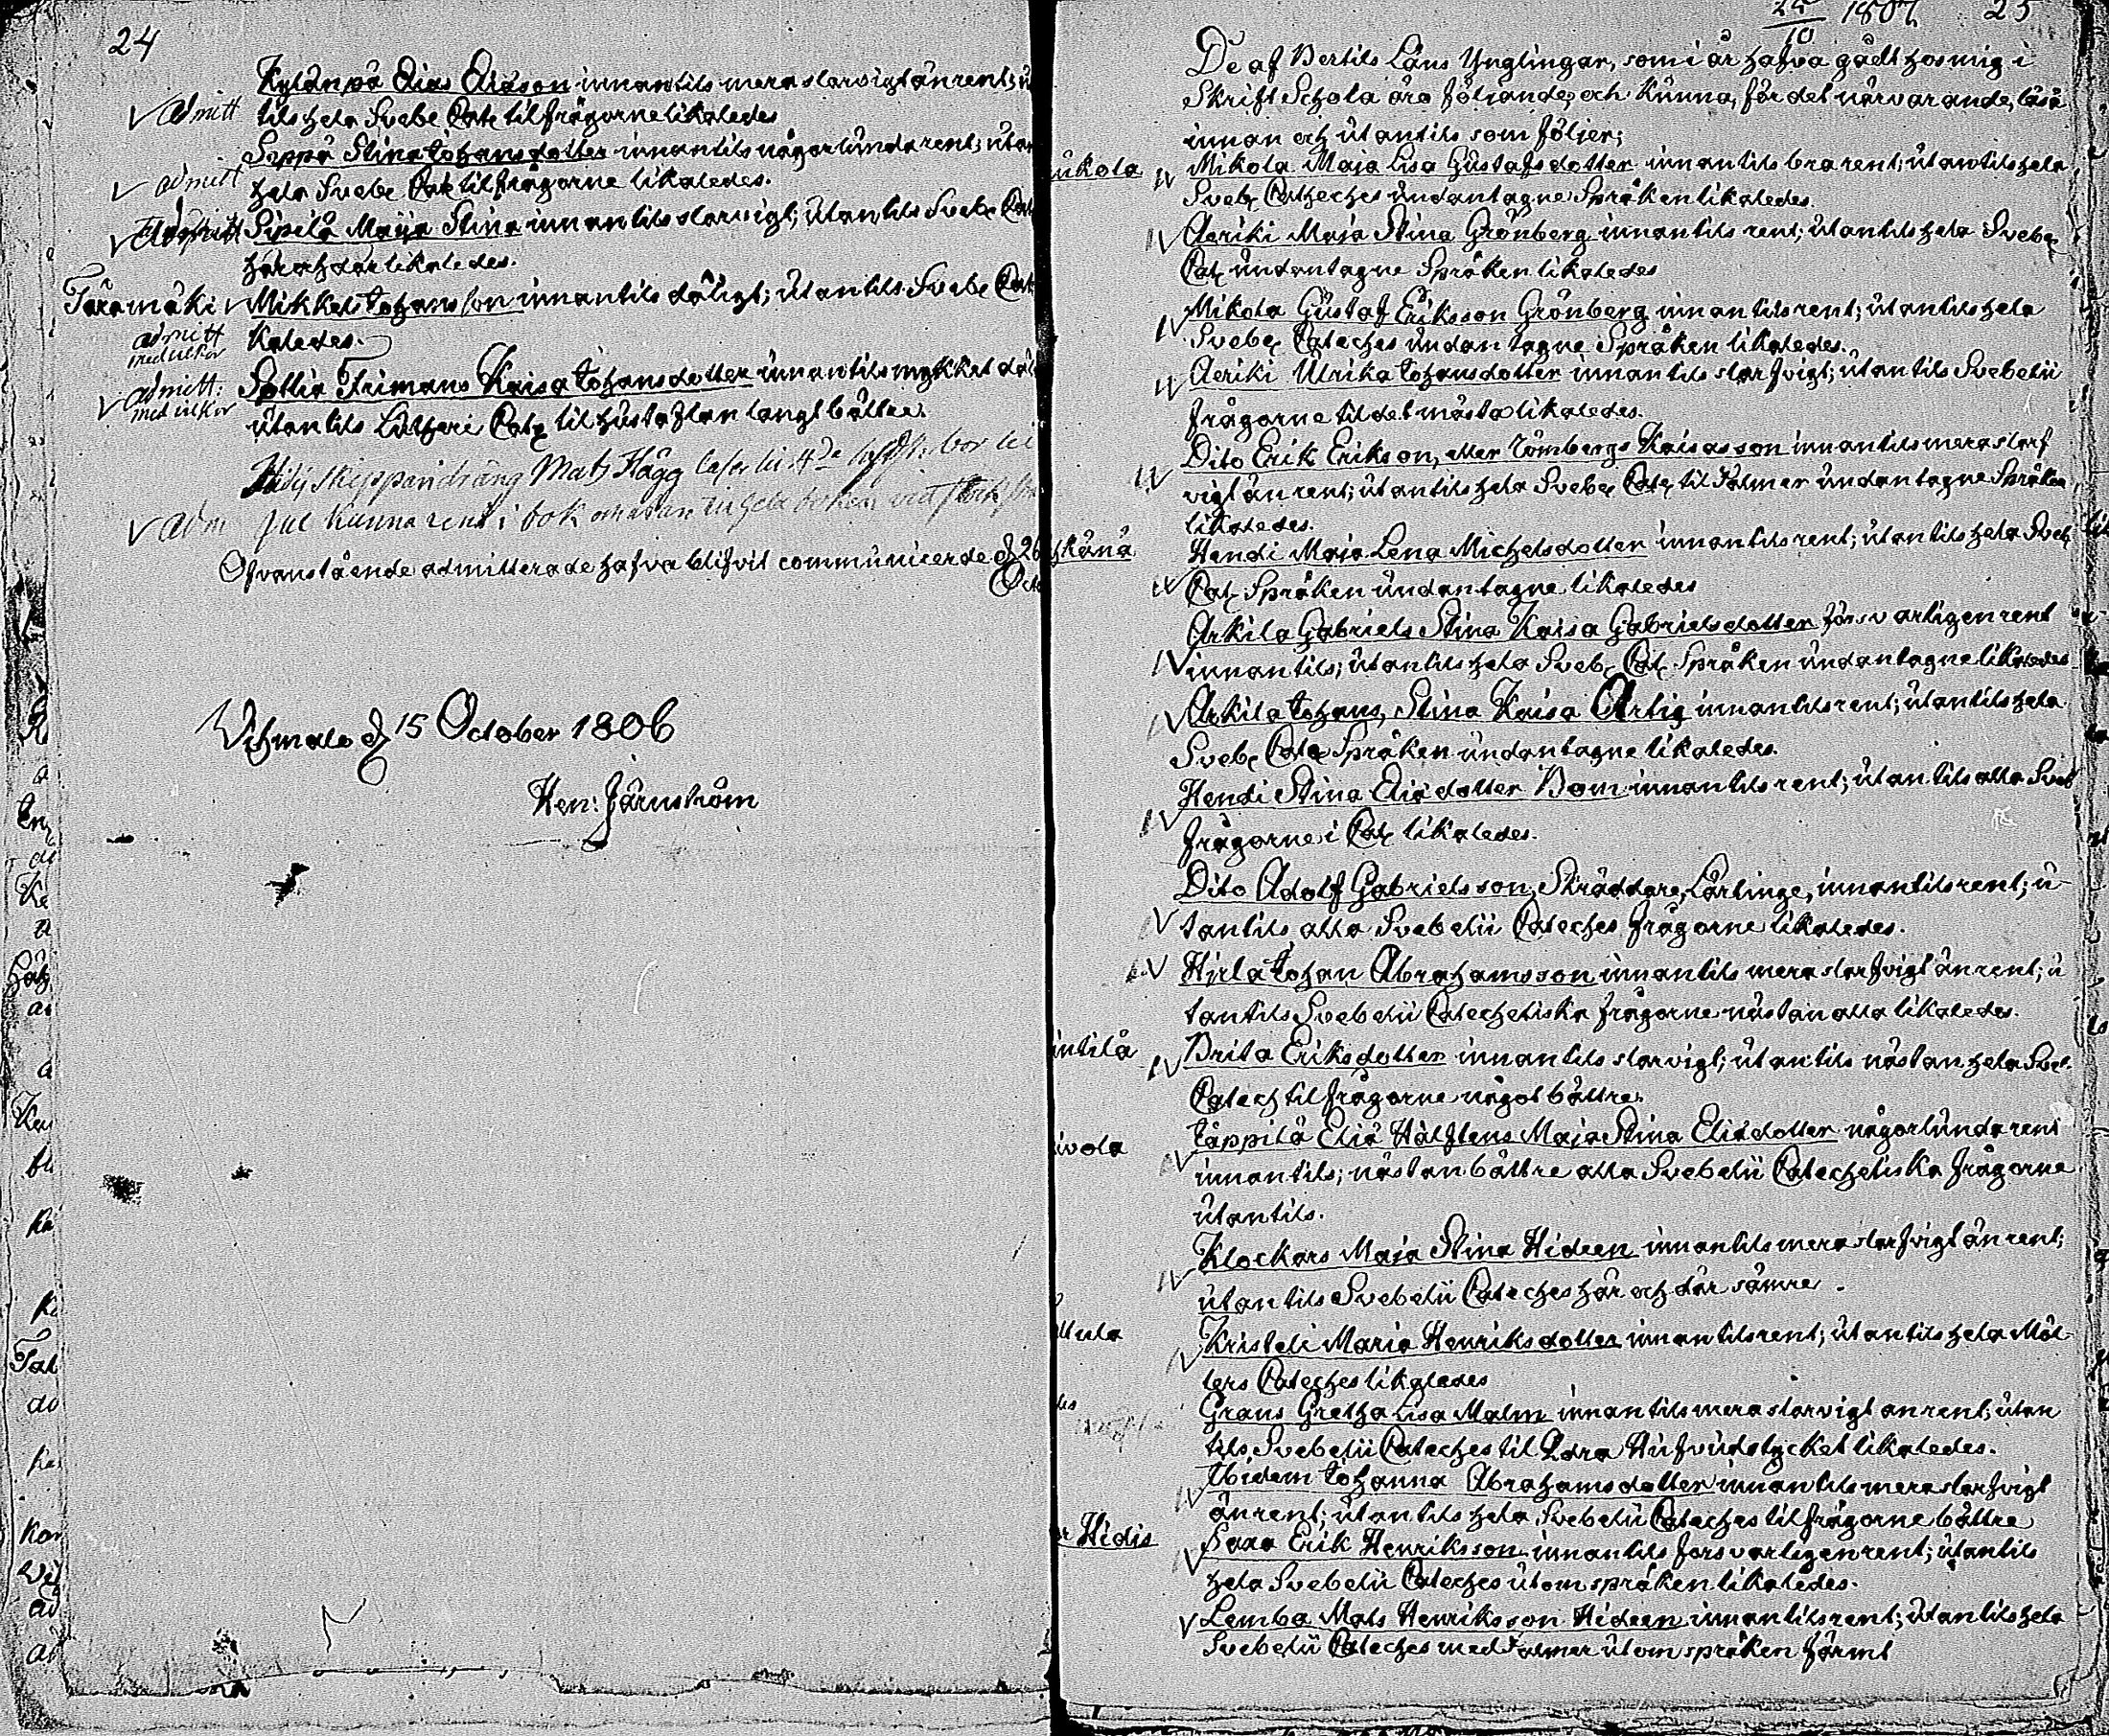 24
Kylänpä Elias Eliasson innantils mera slarvigt än rent; u
✓ admitt tils hela Svebe Cat: til frågorne likaledes
Seppä Stina Johansdotter innantils någorlunda rent; utan
✓ admitt hela Svebe Cat til frågorne likaledes.
✓ admitt Sipilä Maija Stina innantils slarvigt; utantils Svebe Cat
här och där likaledes.
Järamäki ✓ Mikkel Johansson innantils dåligt; utantils Svebe Cat
admitt kaledes.
med vilkor
✓ admitt: Sottia Frimans Kaisa Johansdotter innantils mykket dål
med vilkor utantils Lutheri Cat: til hustaflan langt bättre.
drang Mats Hägg
✓ adm Jul kunna rent i bok
Ofvanstående admitterade hafva blifvit communicerde d 26
Octo
Vehmalo d 15 October 1806
Hen: Järnström
25/10 1807 25
De af Bertils Läns Ynglingar, som i år hafva gådt hos mig i
Skrift Schola äro följande, och kunna, för det närvarande, läsa
innan och utantils som följer;
ukola ✓ Mikola Maja Lisa Gustafsdotter innantils bra rent; utantils hela
Sveb: Catheches undantagne Språken likaledes.
✓ Aeriki Maja Stina Grönberg innantils rent; utantils hela Sveb:
Cat: undantagne Språken likaledes
✓ Mikola Gustaf Eriksson Grönberg innantils rent; utantils hela
Sveb: Cateches undantagne Språken likaledes.
✓ Aeriki Ulrika Johansdotter innantils slarfvigt; utantils Svebelii
frågorne til det mästa likaledes.
✓ Dito Erik Erikson, eller Römbergs Kaisas son innantils mera slarf
vigt än rent; utantils hela Sveb: Cat: til Psalmer undantagne Språken
likaledes.
skänä Hendi Maja Lena Michelsdotter innantils rent; utantils hela Sveb:
✓ Cat: Språken undantagne likaledes
Arkila Gabriels Stina Kaisa Gabrielsdotter försvarligen rent
✓ innantils; utantils hela Sveb: Cat: Språken undantagne likaledes
✓ Arkila Johans, Stina Kaisa Artig innantils rent; utantils hela
Sveb: Cate: Språken undantagne likaledes.
Hendi Stina Eliædotter Bom innantils rent; utantils alla Sveb
✓ frågorne i Cat: likaledes.
Dito Adolf Gabrielsson, Skräddare, Lärlinge, innantils rent; u-
✓ tantils alla Svebelii Cateches frågorne likaledes.
✓ Hirla Johan Abrahamsson innantils mera slarfvigt än rent; u
tantils Svebelii Catechetiska frågorne nästan alla likaledes.
ntilä ✓ Brita Eriksdotter innantils slarvigt; utantils nästan hela Sveb.
Catech til frågorne något bättre.
ivola ✓ Jäppilä Eliæ Hälftens Maja Stina Eliædotter någorlunda rent
innantils; nästan bättre alla Svebelii Catechetiska frågorne
utantils.
✓ Klockars Maja Stina Hideen innantils mera slarfvigt än rent;
utantils Svebelii Cateches här och där sämre.
ttula ✓ Kristeli Maria Henriksdotter innantils rent; utantils hela Möl-
lers Cateches likaledes
Grans Gretha Lisa Malm innantils mera slarvigt än rent; utan
tils Svebelii Cateches til 2dra Hufvudstycket likaledes.
✓ Ibidem Johanna Abrahamsdotter innantils mera slarfvigt
än rent; utantils hela Svebelii Cateches til frågorne bättre
r Hidis ✓ Saxa Erik Henriksson innantils försvarligen rent; utantils
hela Svebelii Cateches utom språken likaledes.
✓ Lemba Mats Henriksson Hideen innantils rent; utantils hela
Svebelii Cateches med Psalmer utom språken färmt